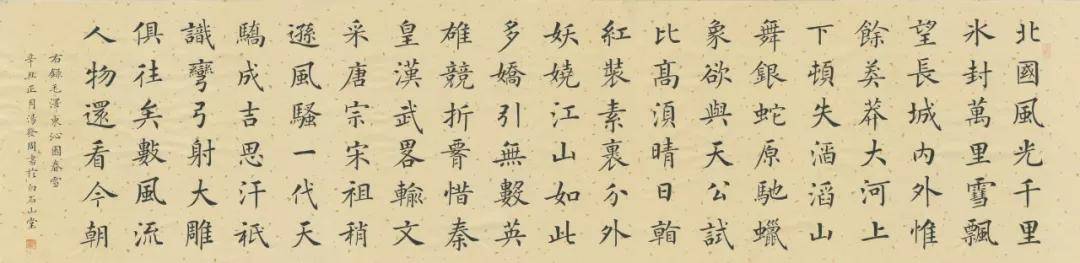 北國風光千里
氷封萬里雪飄
望長城内外惟
餘莽莽大河上
下頓失滔滔山
舞銀蛇原馳蠟
象欲與天公試
比髙湏晴日
紅裝素裹分外
妖嬈江山如此
多嬌引無數英
雄競折惜秦
皇漢武畧輸文
采唐宗宋祖稍
遜風騷一代天
驕成吉思汗祇
識彎弓射大雕
俱往矣數風流
人物還看今朝
右錄毛澤東沁園春雪
辛丑正月湯發周書於白石山堂